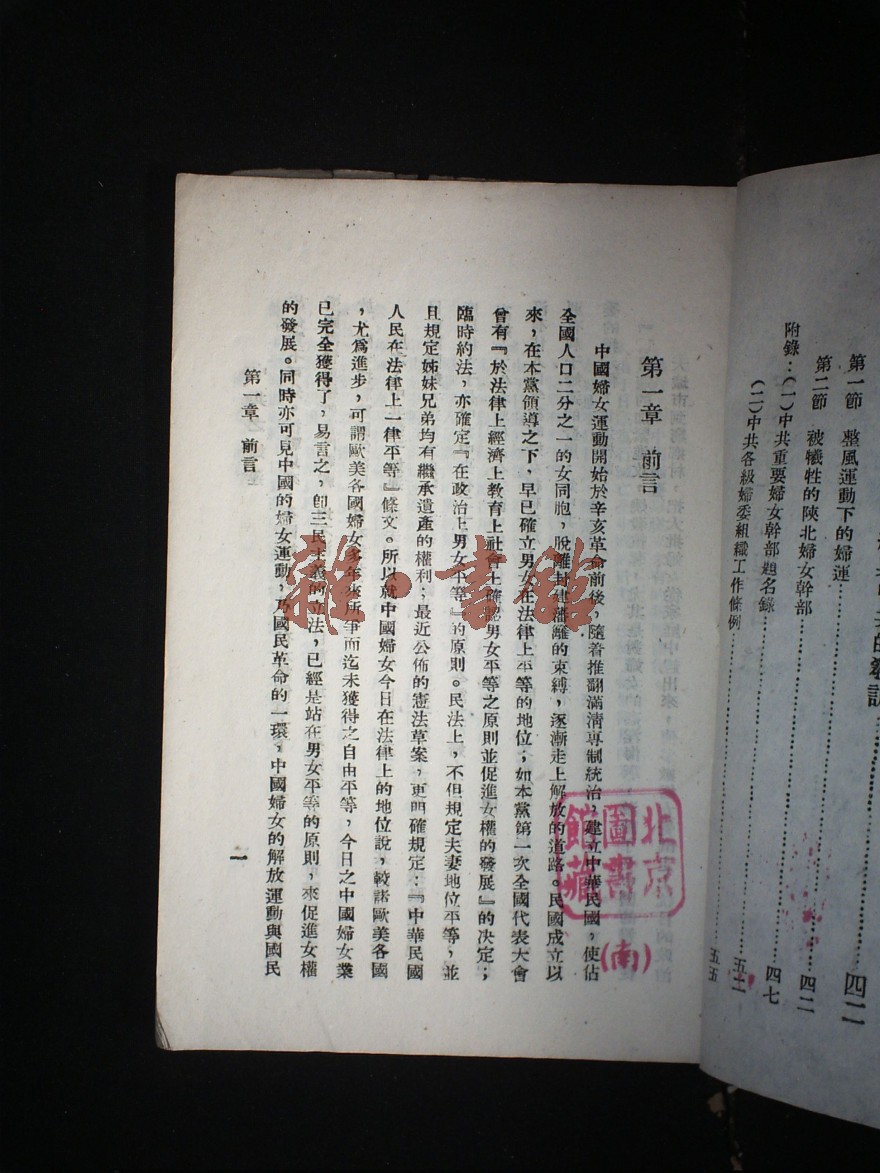 第一節 整風運動下的婦運
四二
第二節 被犧牲的陝北婦女幹部
四二
附錄：(一)中共重要婦女幹部題名錄
四七
(二)中共各級婦委組織工作條例
第一章 前言
中國婦女運動開始於辛亥革命前後，隨着推翻滿清專制統治，建立中華民國，使佔
全國人口二分之一的女同胞，脫離封建藩籬的束縛，逐漸走上解放的道路。民國成立以
來，在本黨領導之下，早已確立男女在法律上平等的地位；如本黨第一次全國代表大會
曾有『於法律上經濟上教育上社會上確認男女平等之原則並促進女權的發展』的決定；
臨時約法，亦確定『在政治上男女平等』的原則。民法上，不但規定夫妻地位平等，並
且規定姊妹兄弟均有繼承遺產的權利；最近公佈的憲法草案，更明確規定：『中華民國
人民在法律上一律平等』條文。所以就中國婦女今日在法律上的地位說，較諸歐美各國
，尤為進步，可謂歐美各國婦女多年來所爭而迄未獲得之自由平等，今日之中國婦女業
已完全獲得了，易言之，卽三民主義的立法，已經是站在男女平等的原則，來促進女權
的發展。同時亦可見中國的婦女運動，乃國民革命的一環，中國婦女的解放運動與國民
第一章 前言
一
北京
圖書
館藏
(南)
雜·書館